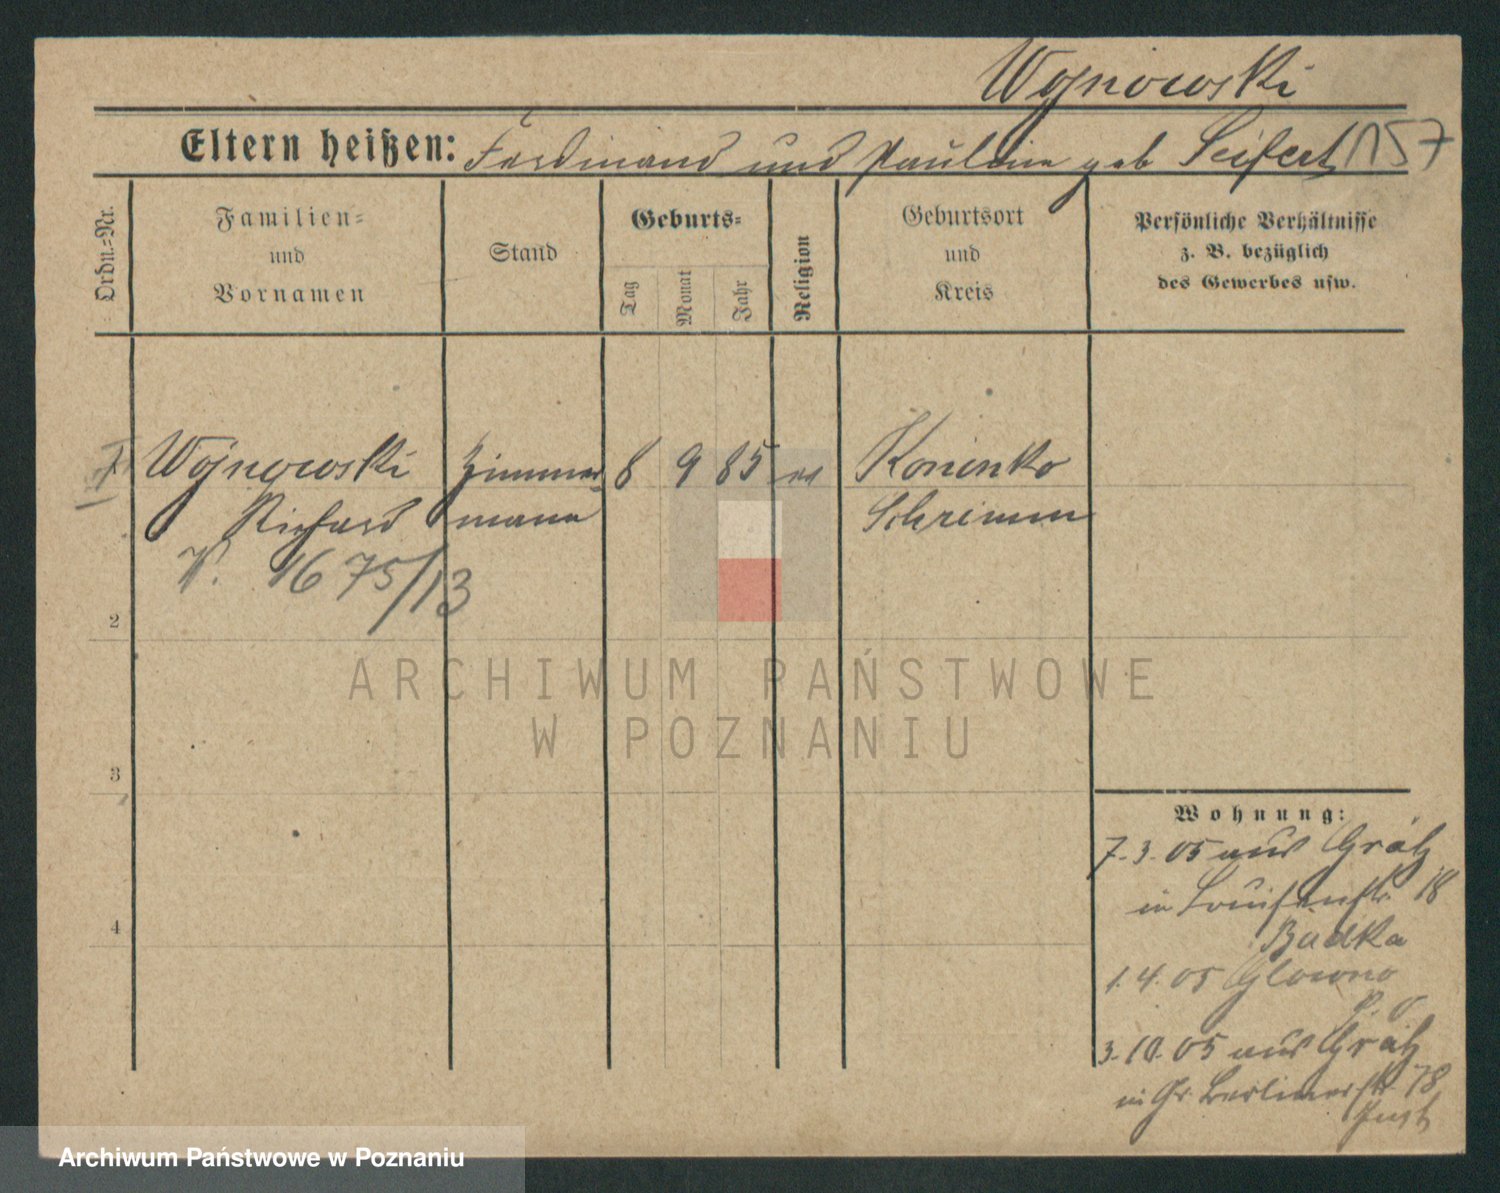 Wojnowski
Eltern heißen: Ferdinand und Pauline geb Seifert 1157
Ordn.=Nr.
Familien=
und
Vornamen
Stand
Geburts=
Tag
Monat
Jahr
Religion
Geburtsort
und
Kreis
Persönliche Verhältnisse
z. B. bezüglich
des Gewerbes usw.
1 Wojnowski Zimmer 8 9 85 ev Koninko
Richard mann Schrimm
V. 1675/13
2
3
4
ARCHIWUM PAŃSTWOWE
W POZNANIU
Wohnung:
7.3.05 aus Grätz
in Louisenstr. 18
Budka
1.4.05 Glowno
P. O
3.10.05 aus Grätz
in Gr. Berlinerstr. 78
Archiwum Państwowe w Poznaniu